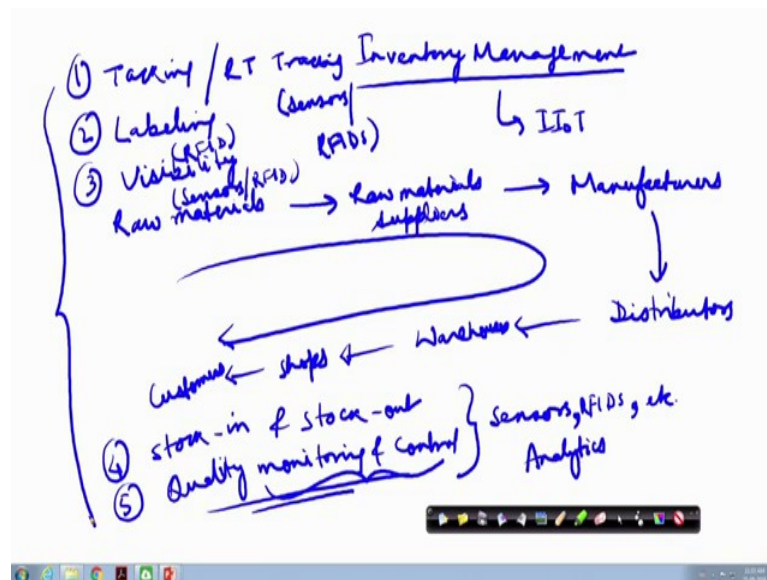 Inventory Management
↳ IIoT
① Tacking / RT Tracing
(sensors/
RFIDs)
② Labeling
(RFID)
③ Visibility
(Sensors/RFIDs)
Raw materials → Raw materials suppliers → Manufacturers
Distributors
Customers ← shops ← Warehouses ←
④ Stock-in & stock-out
⑤ Quality monitoring & Control
Sensors, RFIDs, etc.
Analytics